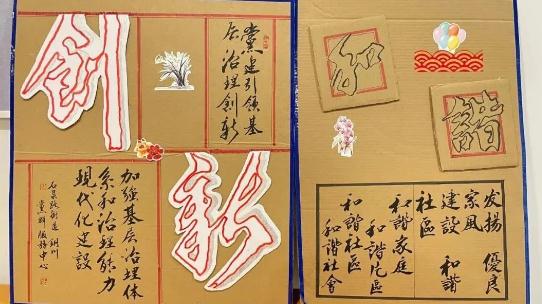 創
黨建引領基
层治理創新
新
加强基层治理体
系和治理能力
現代化建設
黨群服務中心
和
諧
发揚 優良
家風
建設 和諧
社區
和諧家庭
和諧片區
和諧社區
和諧社會